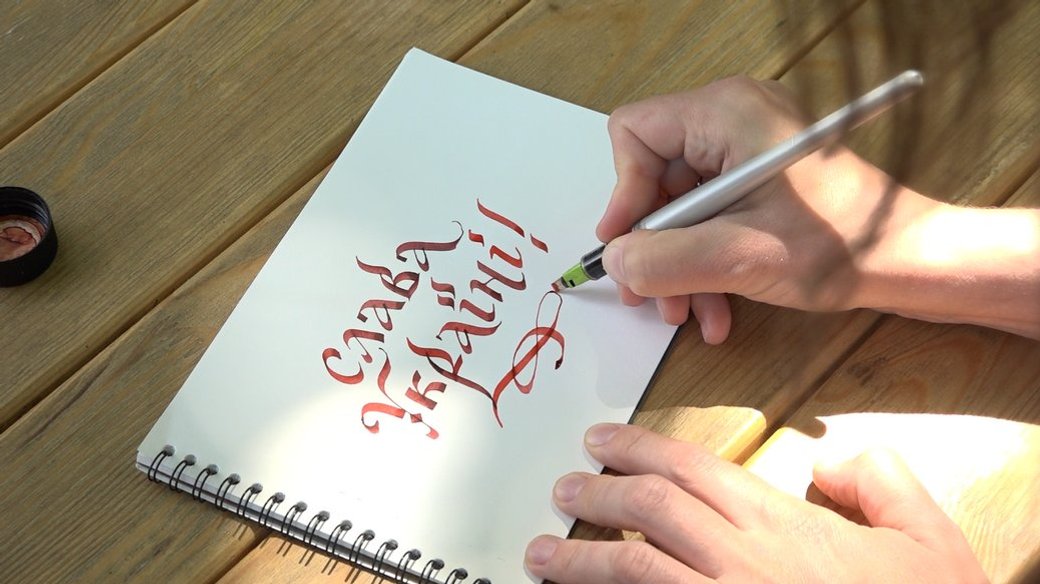 Слава
Україні!